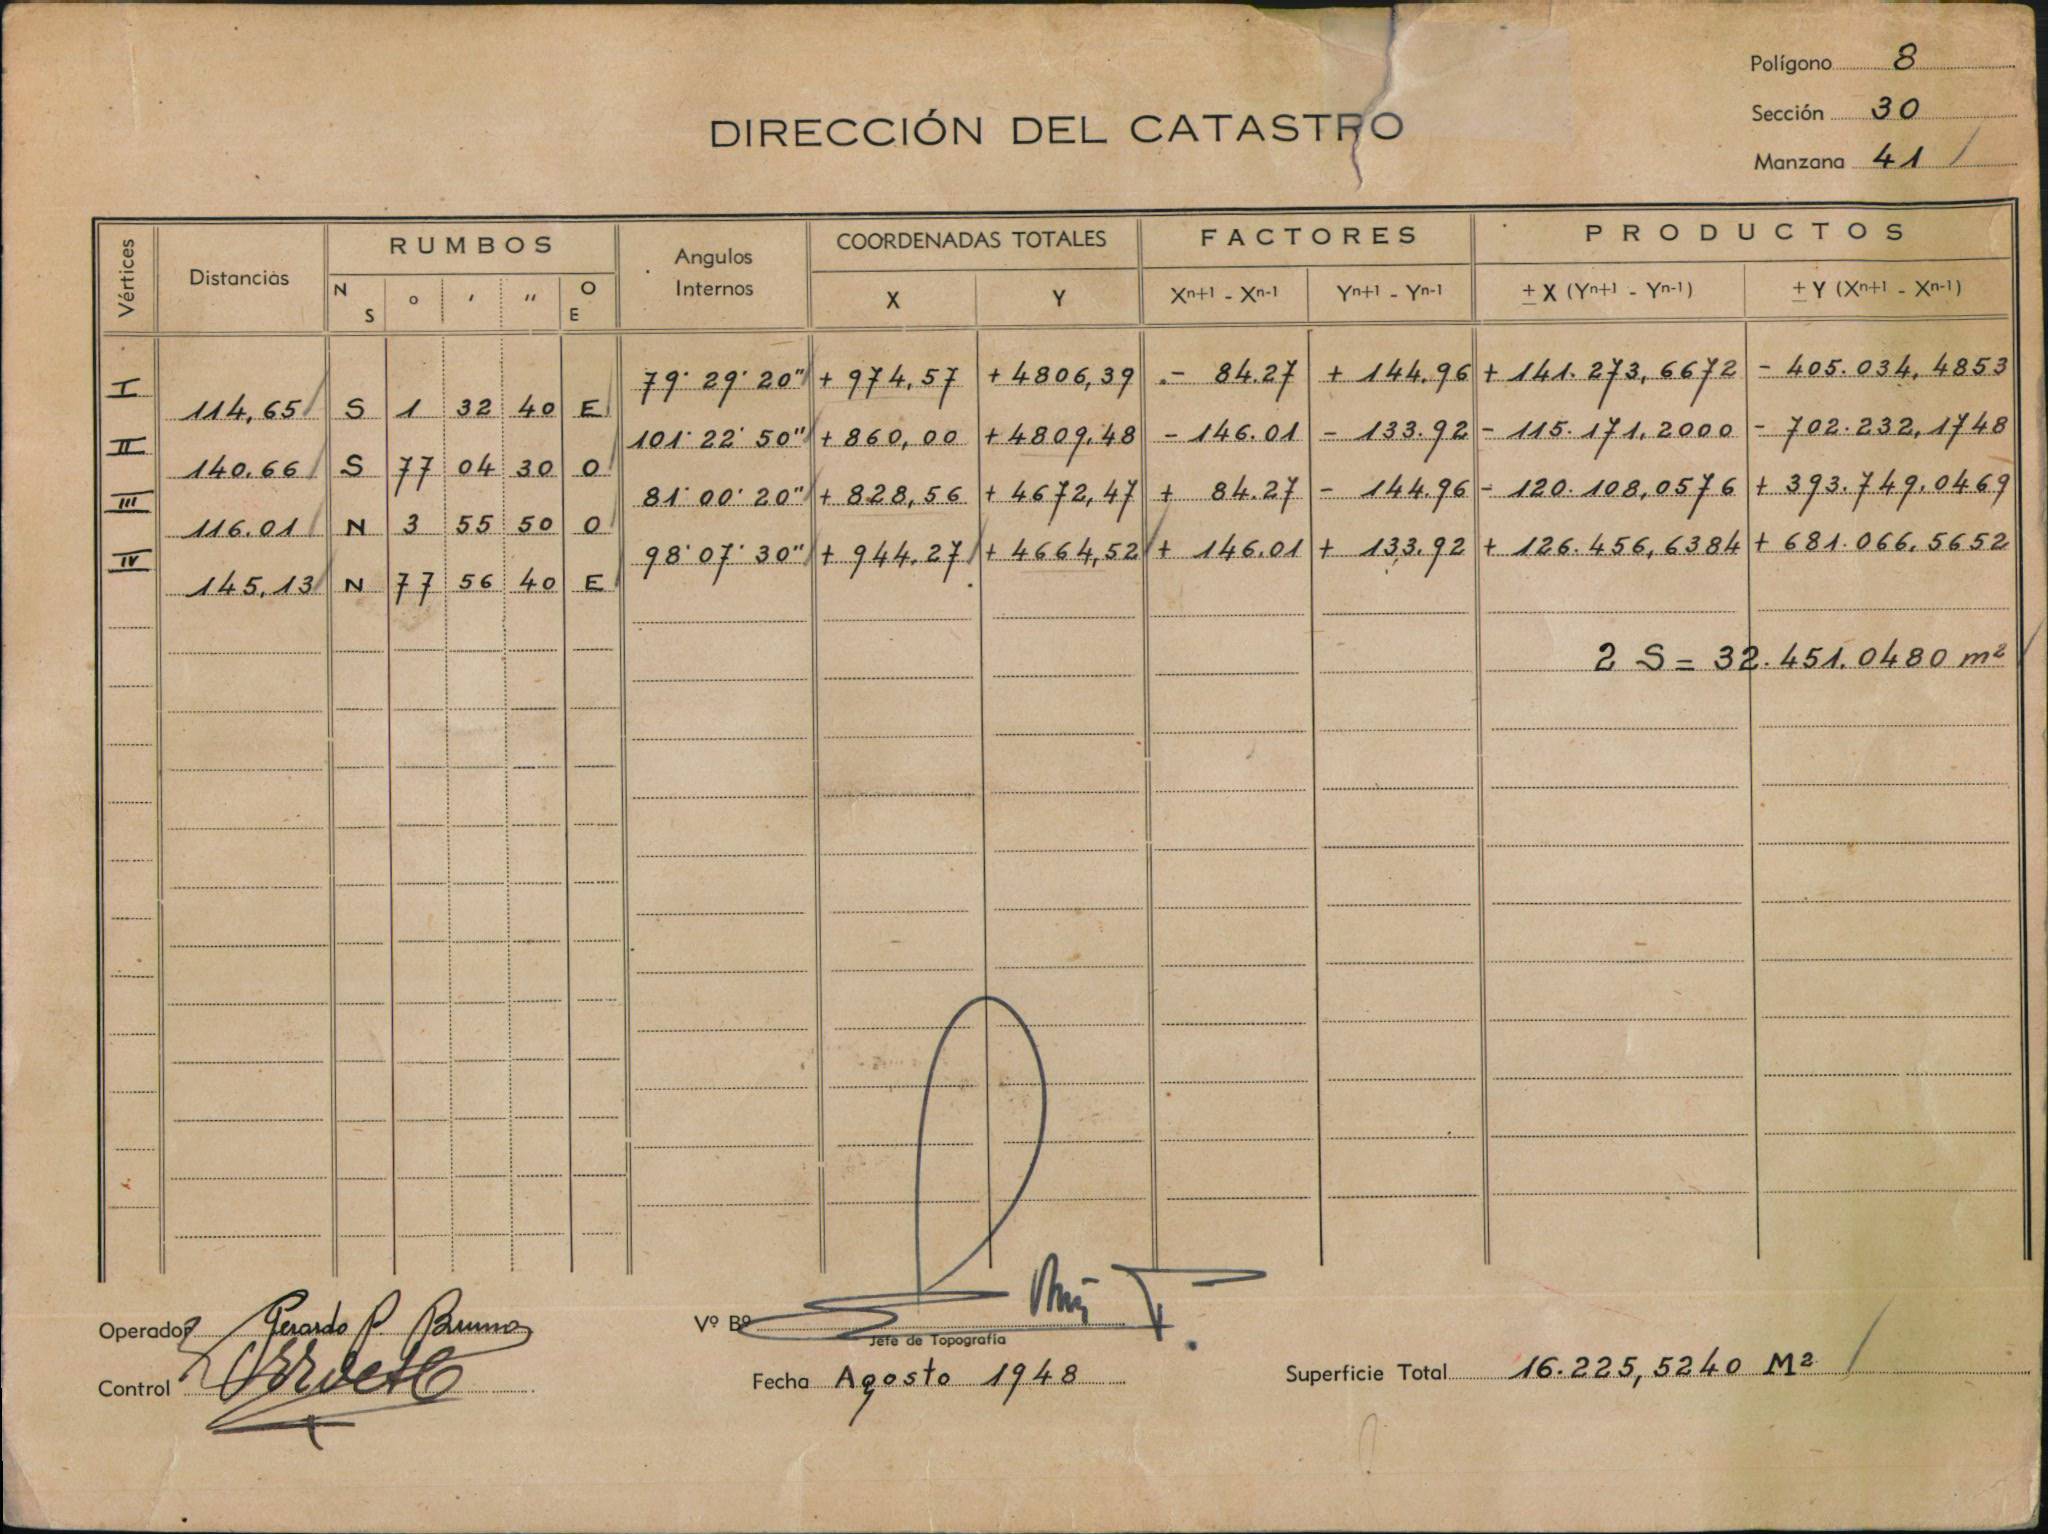 Polígono 8
Sección 30
Manzana 41
DIRECCIÓN DEL CATASTRO
Vértices Distancias RUMBOS Angulos Internos COORDENADAS TOTALES FACTORES PRODUCTOS
N S ° ' " O E X Y Xn+1 - Xn-1 Yn+1 - Yn-1 ± X (Yn+1 - Yn-1) ± Y (Xn+1 - Xn-1)
I 79° 29' 20" + 974,57 + 4806,39 - 84.27 + 144.96 + 141.273,6672 - 405.034,4853
114,65 S 1 32 40 E
II 101° 22' 50" + 860,00 + 4809,48 - 146.01 - 133.92 - 115.171,2000 - 702.232,1748
140.66 S 77 04 30 O
III 81° 00' 20" + 828,56 + 4672,47 + 84.27 - 144.96 - 120.108,0576 + 393.749,0469
116.01 N 3 55 50 O
IV 98° 07' 30" + 944.27 + 4664,52 + 146.01 + 133.92 + 126.456,6384 + 681.066,5652
145,13 N 77 56 40 E
2 S = 32.451.0480 m²
Operador Gerardo P. Bruno
Vº Bº
Jefe de Topografía
Control
Fecha Agosto 1948
Superficie Total 16.225,5240 M²